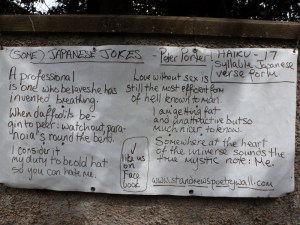 (SOME) JAPANESE JOKES - Peter Porter
HAIKU - 17
Syllable Japanese
verse form.
A professional
is one who believes he has
invented breathing.
When daffodils be-
gin to peer: watch out, para-
noia's round the bend.
I consider it
my duty to be old hat
so you can hate me.
Love without sex is
still the most efficient form
of hell known to man.
I am getting fat
and unattractive but so
much nicer to know.
Somewhere at the heart
of the universe sounds the
true mystic note: Me.
like us
on
Face
book
www.standrewspoetrywall.com